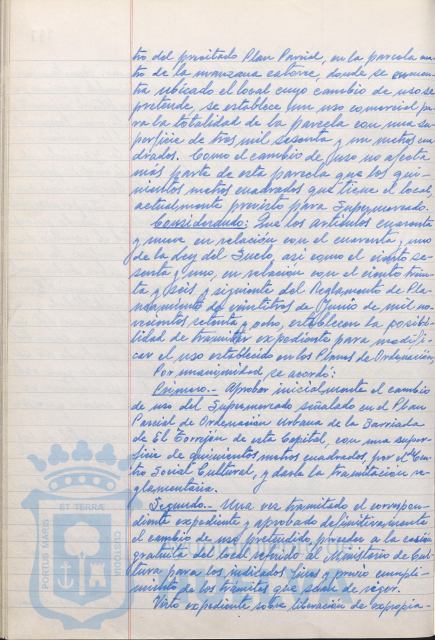 tro del precitado Plan Parcial, en la parcela cua-
tro de la manzana catorce, donde se encuen-
tra ubicado el local cuyo cambio de uso se
pretende, se establece un uso comercial pa
ra la totalidad de la parcela con una su
perficie de tres mil sesenta y un metros cua
drados. Como el cambio de uso no afecta
más parte de esta parcela que los qui-
nientos metros cuadrados que tiene el local,
actualmente previsto para Supermercado.
Considerando: Que los artículos cuarenta
y nueve en relación con el cuarenta y uno
de la Ley del Suelo, así como el ciento se-
senta y uno, en relación con el ciento trein-
ta y seis y siguiente del Reglamento de Pla-
neamiento de veintitres de Junio de mil no-
vecientos setenta y ocho, establecen la posibi-
lidad de tramitar expediente para modifi-
car el uso establecido en los Planes de Ordenación,
Por unanimidad se acordó:
Primero.- Aprobar inicialmente el cambio
de uso del Supermercado señalado en el Plan
Parcial de Ordenación Urbana de la Barriada
de El Torrejón de esta Capital, con una super-
ficie de quinientos metros cuadrados, por el Cen-
tro Social Cultural, y darle la tramitación re-
glamentaria.
Segundo.- Una vez tramitado el correspon-
diente expediente y aprobado definitivamente
el cambio de uso pretendido, proceder a la cesión
gratuita del local referido al Ministerio de Cul-
tura para los indicados fines y previo cumpli-
miento de los trámites que sean de rigor.
Visto expediente sobre liberación de expropia-
PORTUS MARIS ET TERRAE CUSTODIA